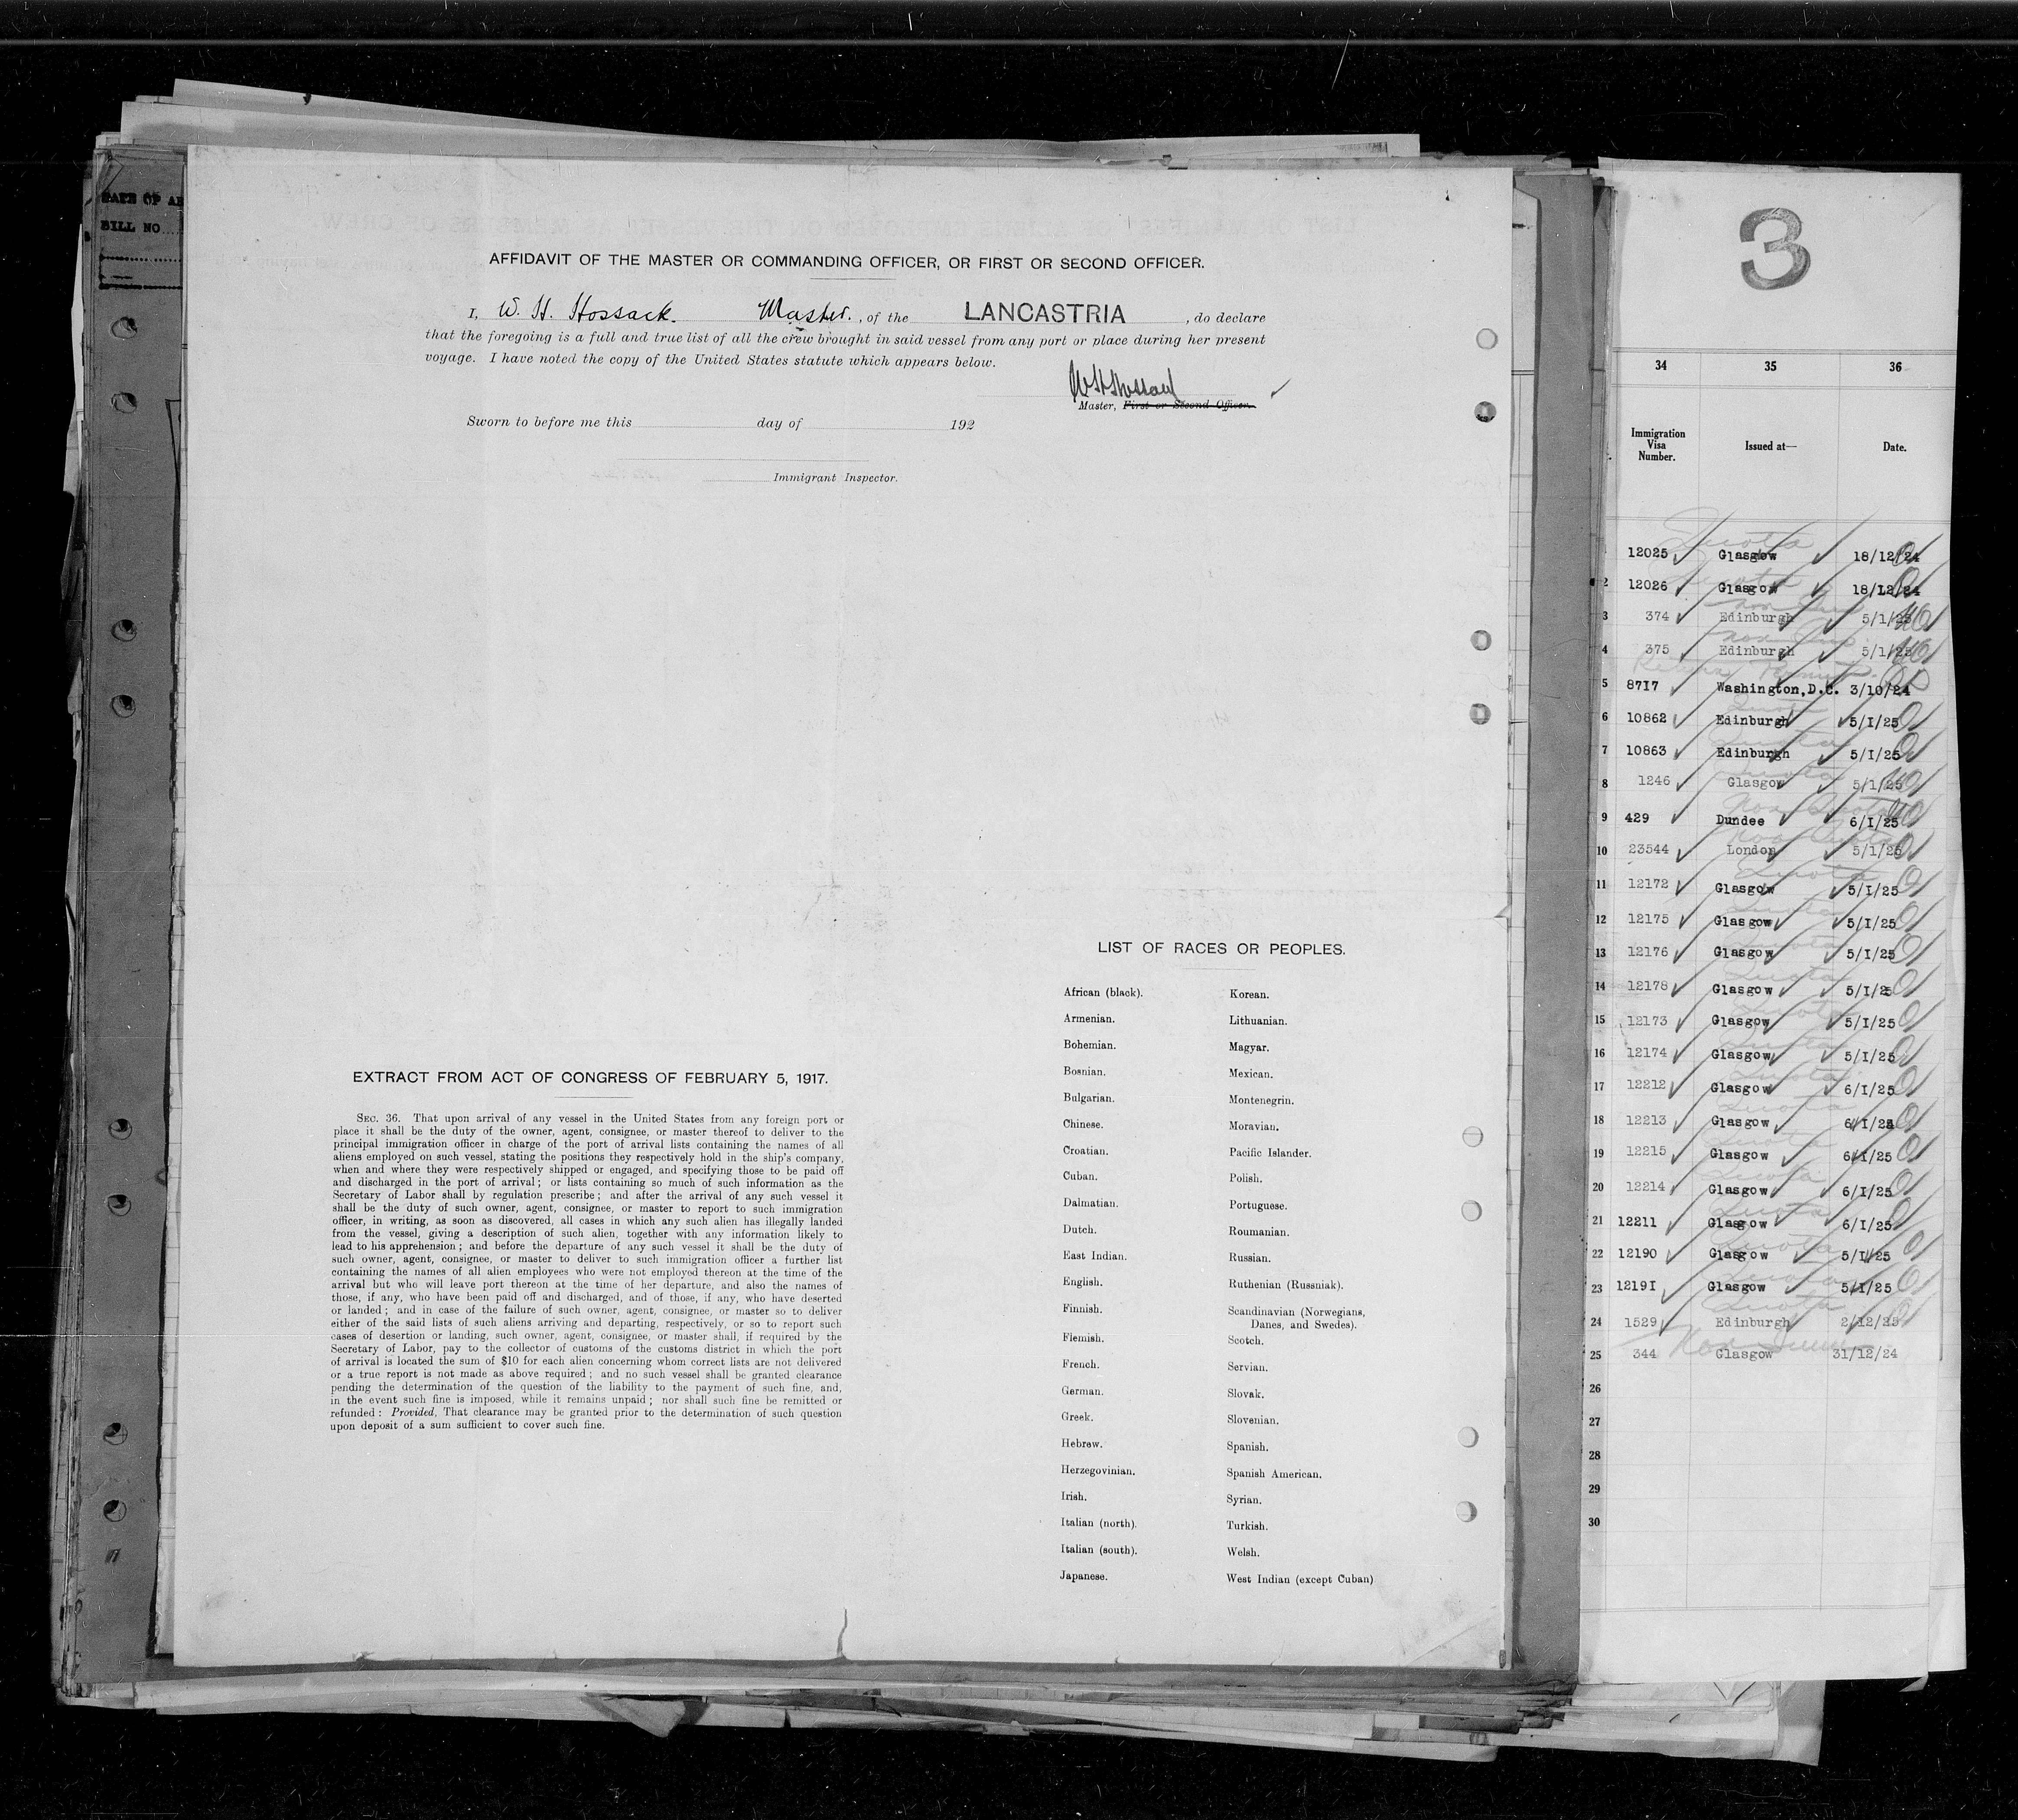 DATE OF AR
BILL NO
AFFIDAVIT OF THE MASTER OR COMMANDING OFFICER, OR FIRST OR SECOND OFFICER.
I, W. H. Hossack. Master. , of the LANCASTRIA , do declare
that the foregoing is a full and true list of all the crew brought in said vessel from any port or place during her present
voyage. I have noted the copy of the United States statute which appears below.
W H Hossack
Master, First or Second Officer.
Sworn to before me this day of 192
Immigrant Inspector.
EXTRACT FROM ACT OF CONGRESS OF FEBRUARY 5, 1917.
SEC. 36. That upon arrival of any vessel in the United States from any foreign port or
place it shall be the duty of the owner, agent, consignee, or master thereof to deliver to the
principal immigration officer in charge of the port of arrival lists containing the names of all
aliens employed on such vessel, stating the positions they respectively hold in the ship's company,
when and where they were respectively shipped or engaged, and specifying those to be paid off
and discharged in the port of arrival; or lists containing so much of such information as the
Secretary of Labor shall by regulation prescribe; and after the arrival of any such vessel it
shall be the duty of such owner, agent, consignee, or master to report to such immigration
officer, in writing, as soon as discovered, all cases in which any such alien has illegally landed
from the vessel, giving a description of such alien, together with any information likely to
lead to his apprehension; and before the departure of any such vessel it shall be the duty of
such owner, agent, consignee, or master to deliver to such immigration officer a further list
containing the names of all alien employees who were not employed thereon at the time of the
arrival but who will leave port thereon at the time of her departure, and also the names of
those, if any, who have been paid off and discharged, and of those, if any, who have deserted
or landed; and in case of the failure of such owner, agent, consignee, or master so to deliver
either of the said lists of such aliens arriving and departing, respectively, or so to report such
cases of desertion or landing, such owner, agent, consignee, or master shall, if required by the
Secretary of Labor, pay to the collector of customs of the customs district in which the port
of arrival is located the sum of $10 for each alien concerning whom correct lists are not delivered
or a true report is not made as above required; and no such vessel shall be granted clearance
pending the determination of the question of the liability to the payment of such fine, and,
in the event such fine is imposed, while it remains unpaid; nor shall such fine be remitted or
refunded: Provided, That clearance may be granted prior to the determination of such question
upon deposit of a sum sufficient to cover such fine.
LIST OF RACES OR PEOPLES.
African (black).
Armenian.
Bohemian.
Bosnian.
Bulgarian.
Chinese.
Croatian.
Cuban.
Dalmatian.
Dutch.
East Indian.
English.
Finnish.
Flemish.
French.
German.
Greek.
Hebrew.
Herzegovinian.
Irish.
Italian (north).
Italian (south).
Japanese.
Korean.
Lithuanian.
Magyar.
Mexican.
Montenegrin.
Moravian.
Pacific Islander.
Polish.
Portuguese.
Roumanian.
Russian.
Ruthenian (Russniak).
Scandinavian (Norwegians,
Danes, and Swedes).
Scotch.
Servian.
Slovak.
Slovenian.
Spanish.
Spanish American.
Syrian.
Turkish.
Welsh.
West Indian (except Cuban)
3
34 35 36
Immigration
Visa
Number.
Issued at—
Date.
Quota
12025 Glasgow 18/12/24
2 12026 Glasgow 18/12/24
3 374 Edinburgh 5/1/25
4 375 Edinburgh 5/1/25
Return Permit
5 8717 Washington, D.C. 3/10/24
6 10862 Edinburgh 5/I/25
7 10863 Edinburgh 5/I/25
8 1246 Glasgow 5/1/25
Non Quota
9 429 Dundee 6/I/25
10 23544 London 5/1/25
11 12172 Glasgow 5/I/25
12 12175 Glasgow 5/I/25
13 12176 Glasgow 5/I/25
14 12178 Glasgow 5/I/25
15 12173 Glasgow 5/I/25
16 12174 Glasgow 5/I/25
17 12212 Glasgow 6/I/25
18 12213 Glasgow 6/I/25
19 12215 Glasgow 6/I/25
20 12214 Glasgow 6/I/25
21 12211 Glasgow 6/I/25
22 12190 Glasgow 5/I/25
23 1219I Glasgow 5/I/25
24 1529 Edinburgh 2/12/25
25 344 Glasgow 31/12/24
26
27
28
29
30